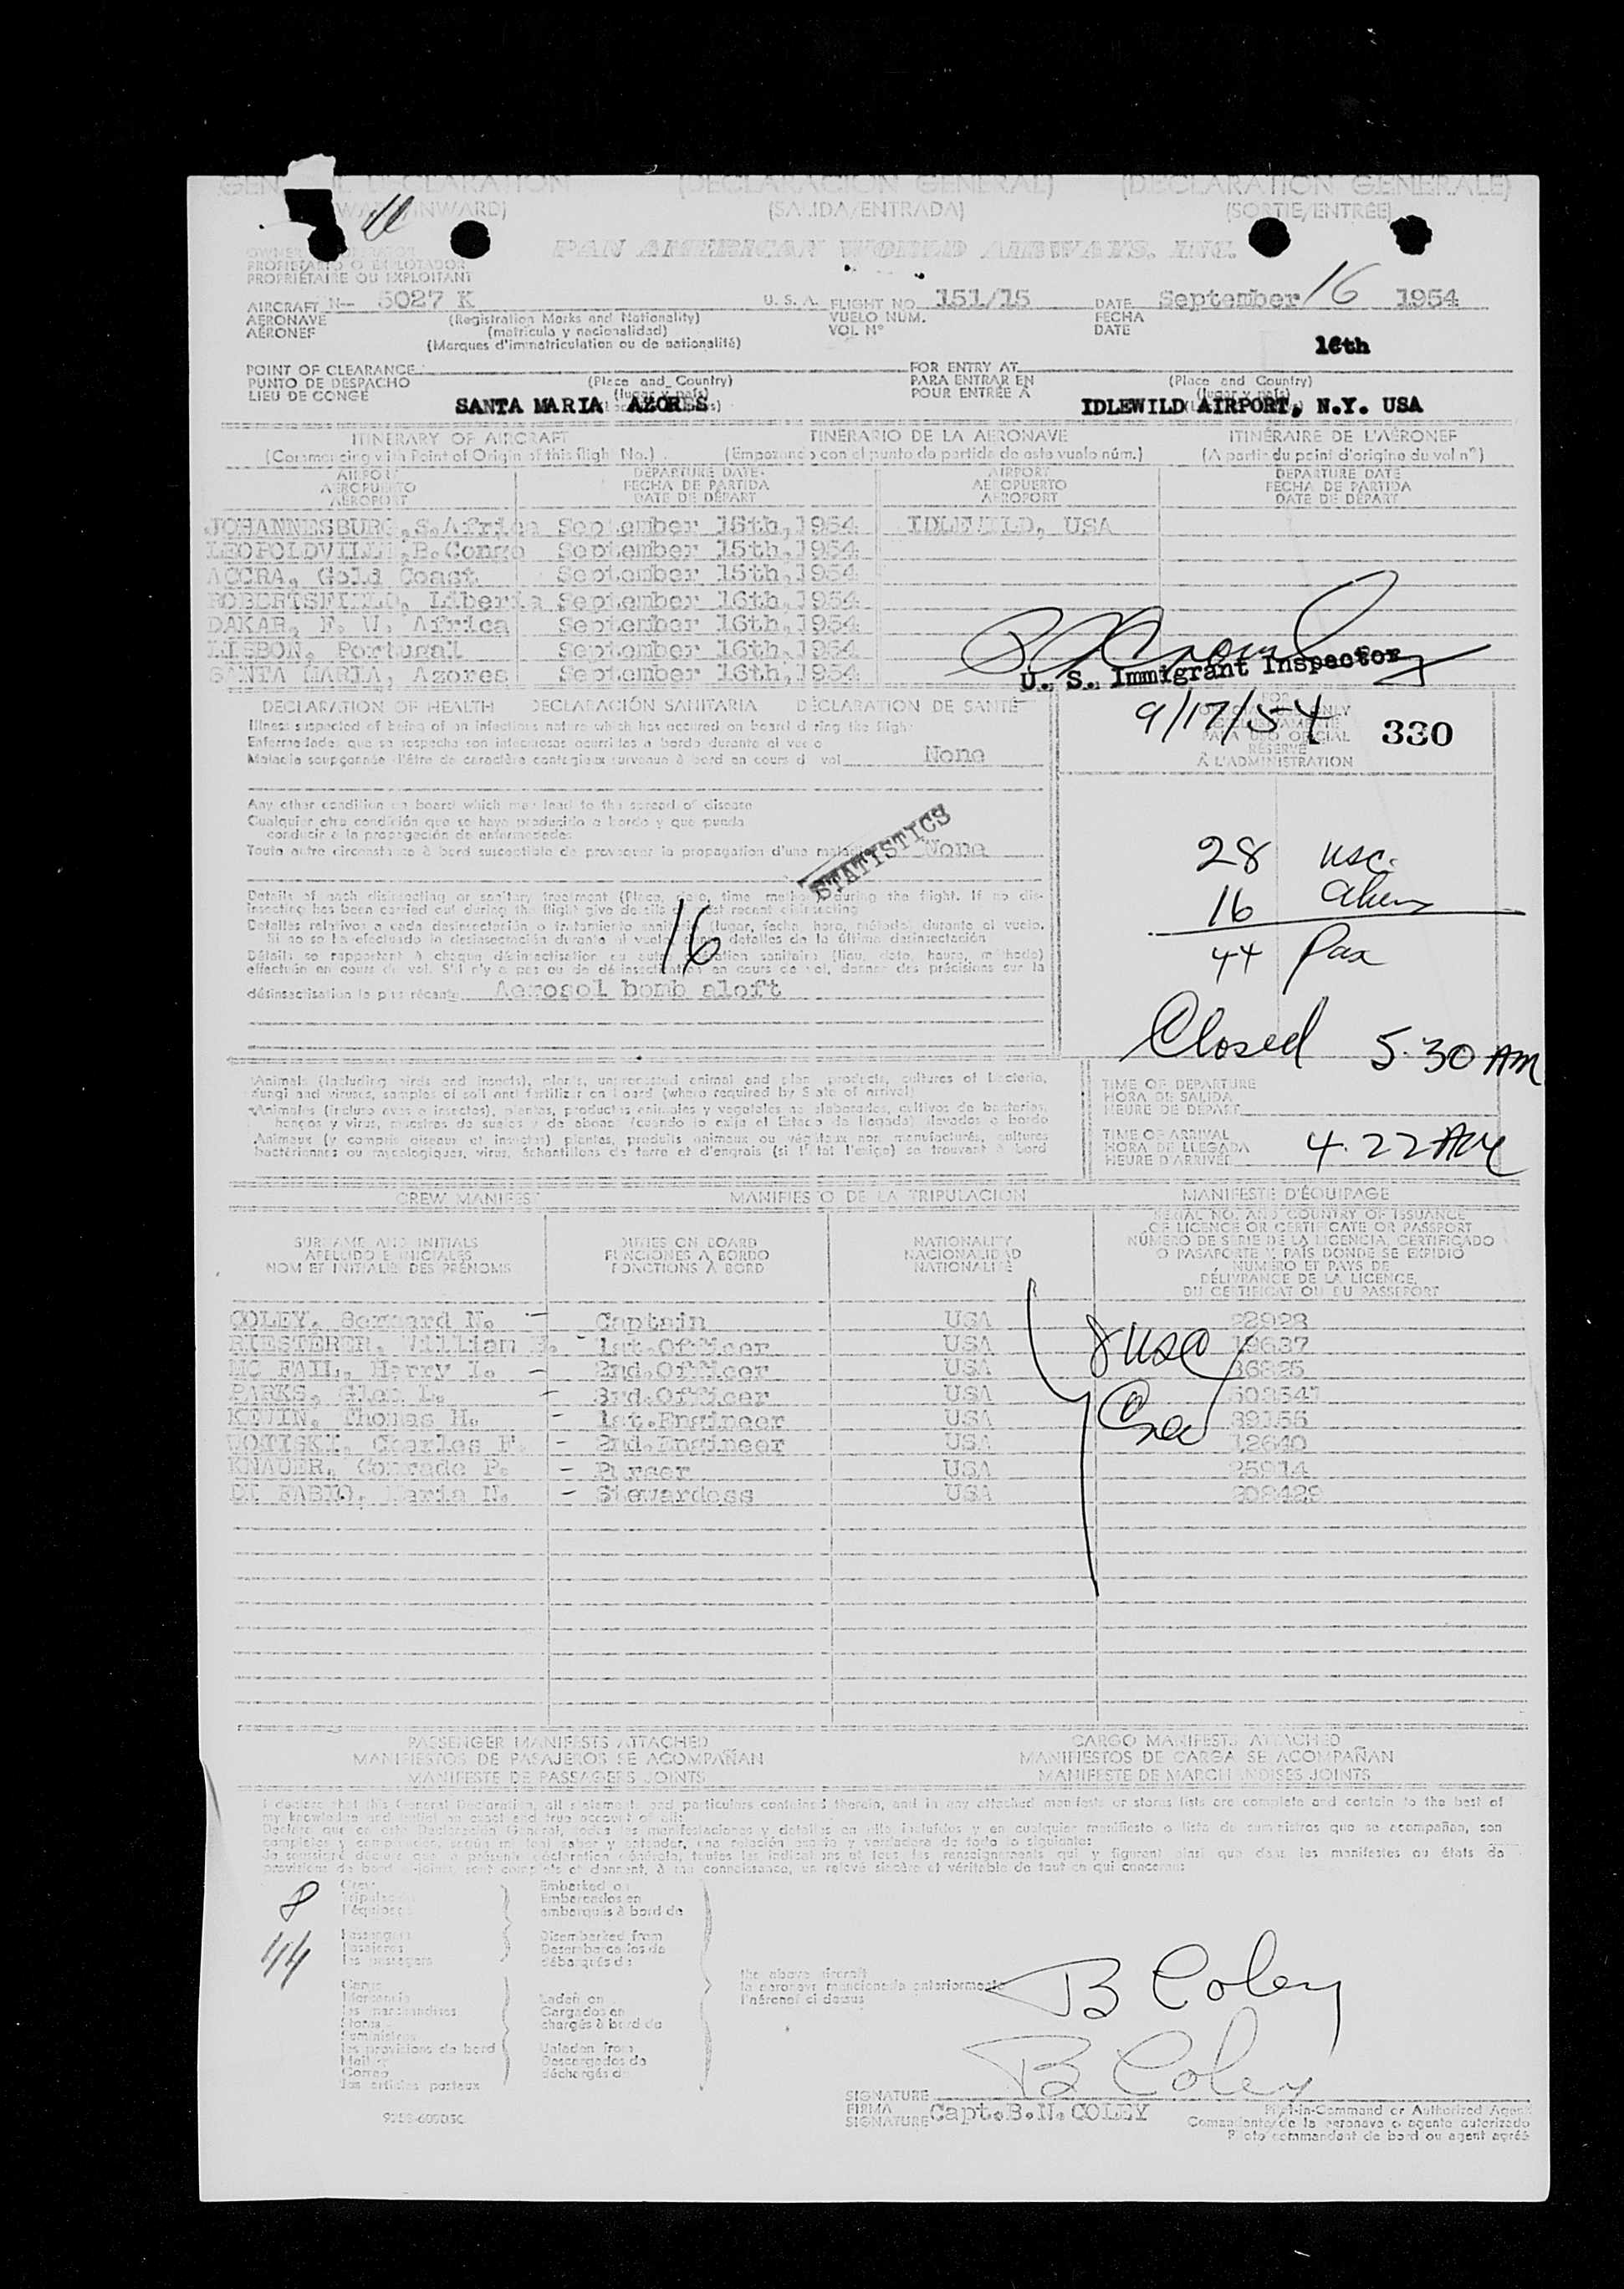 GENERAL DECLARATION (DECLARACION GENERAL) (DECLARATION GENERALE)
INWARD) (SALIDA/ENTRADA) (SORTIE/ENTRÉE)
PAN AMERICAN WORLD AIRWAYS, INC.
PROPIETARIO O EXPLOTADOR
PROPRIÉTAIRE OU EXPLOITANT
AIRCRAFT N- 5027 K U. S. A. FLIGHT NO. 151/15 DATE September 16 1954
AERONAVE (Registration Marks and Nationality) VUELO NUM. FECHA
AÉRONEF (matricula y nacionalidad) VOL Nº DATE
(Marques d'immatriculation ou de nationalité)
16th
POINT OF CLEARANCE FOR ENTRY AT
PUNTO DE DESPACHO (Place and Country) PARA ENTRAR EN (Place and Country)
LIEU DE CONGÉ (lugar y país) POUR ENTRÉE À (lugar y país)
SANTA MARIA AZORES IDLEWILD AIRPORT, N.Y. USA
ITINERARY OF AIRCRAFT ITINERARIO DE LA AERONAVE ITINÉRAIRE DE L'AÉRONEF
(Commencing with Point of Origin of this flight No.) (Empezando con el punto de partida de este vuelo núm.) (A partir du point d'origine du vol nº)
AIRPORT DEPARTURE DATE AIRPORT DEPARTURE DATE
AEROPUERTO FECHA DE PARTIDA AEROPUERTO FECHA DE PARTIDA
AÉROPORT DATE DE DÉPART AÉROPORT DATE DE DÉPART
JOHANNESBURG, S.Africa September 15th, 1954 IDLEWILD, USA
LEOPOLDVILLE, B.Congo September 15th, 1954
ACCRA, Gold Coast September 15th, 1954
ROBERTSFIELD, Liberia September 16th, 1954
DAKAR, F. W. Africa September 16th, 1954
LISBON, Portugal September 16th, 1954
SANTA MARIA, Azores September 16th, 1954
U. S. Immigrant Inspector
9/17/54 330
DECLARATION OF HEALTH DECLARACIÓN SANITARIA DÉCLARATION DE SANTÉ
FOR OFFICIAL USE ONLY
PARA USO OFICIAL
RÉSERVÉ
À L'ADMINISTRATION
Illness suspected of being of an infectious nature which has occured on board during the flight
Enfermedades que se sospecha son infecciosas ocurridas a bordo durante el vuelo
Maladie soupçonnée d'être de caractère contagieux survenue à bord en cours de vol None
Any other condition on board which may lead to the spread of disease
Cualquier otra condición que se haya producido a bordo y que pueda
conducir a la propagación de enfermedades
Toute autre circonstance à bord susceptible de provoquer la propagation d'une maladie None
STATISTICS
28 usc.
16 aliens
44 Pax
Details of each disinsecting or sanitary treatment (Place, date, time method) during the flight. If no dis-
insecting has been carried out during the flight give details of most recent disinsecting
Detalles relativos a cada desinsectación o tratamiento sanitario (lugar, fecha, hora, método) durante el vuelo.
Si no se ha efectuado la desinsectación durante el vuelo, detalles de la última desinsectación
Détails se rapportant à chaque désinsectisation ou autre opération sanitaire (lieu, date, heure, méthode)
effectuée en cours de vol. S'il n'y a pas eu de désinsectisation en cours de vol, donner des précisions sur la
désinsectisation la plus récente Aerosol bomb aloft
16
Closed 5:30 AM
Animals (including birds and insects), plants, unprocessed animal and plant products, cultures of bacteria,
fungi and viruses, samples of soil and fertilizer on board (where required by State of arrival)
Animales (incluso aves e insectos), plantas, productos animales y vegetales no elaborados, cultivos de bacterias,
hongos y virus, muestras de suelos y de abonos (cuando lo exija el Estado de llegada) llevados a bordo
Animaux (y compris oiseaux et insectes) plantes, produits animaux ou végétaux non manufacturés, cultures
bactériennes ou mycologiques, virus, échantillons de terre et d'engrais (si l'état l'exige) se trouvant à bord
TIME OF DEPARTURE
HORA DE SALIDA
HEURE DE DÉPART
TIME OF ARRIVAL
HORA DE LLEGADA
HEURE D'ARRIVÉE 4.22 AM
CREW MANIFEST MANIFIESTO DE LA TRIPULACION MANIFESTE D'ÉQUIPAGE
SURNAME AND INITIALS DUTIES ON BOARD NATIONALITY SERIAL NO. AND COUNTRY OF ISSUANCE
OF LICENCE OR CERTIFICATE OR PASSPORT
APELLIDO E INICIALES FUNCIONES A BORDO NACIONALIDAD NÚMERO DE SERIE DE LA LICENCIA, CERTIFICADO
O PASAPORTE Y PAÍS DONDE SE EXPIDIÓ
NOM ET INITIALES DES PRÉNOMS FONCTIONS À BORD NATIONALITÉ NUMÉRO ET PAYS DE
DÉLIVRANCE DE LA LICENCE,
DU CERTIFICAT OU DU PASSEPORT
COLEY, Bernard N. - Captain USA 22928
RIESTERER, William - 1st.Officer USA 19637
MC FAIL, Harry L. - 2nd.Officer USA 36825
PARKS, Glen L. - 3rd.Officer USA
KEVIN, Thomas H. - 1st.Engineer USA
Charles F. - 2nd.Engineer USA 12640
KNAUER, Conrade P. - Purser USA 25914
DI FABIO, Maria N. - Stewardess USA 208429
8 USC
Crew
PASSENGER MANIFESTS ATTACHED CARGO MANIFESTS ATTACHED
MANIFIESTOS DE PASAJEROS SE ACOMPAÑAN MANIFIESTOS DE CARGA SE ACOMPAÑAN
MANIFESTE DE PASSAGERS JOINTS MANIFESTE DE MARCHANDISES JOINTS
I declare that this General Declaration, all statements and particulars contained therein, and in any attached manifests or stores lists are complete and contain to the best of
my knowledge and belief an exact and true account of all:
Declaro que en esta Declaración General, todas las manifestaciones y detalles en ella incluídos y en cualquier manifiesto o lista de suministros que se acompañan, son
completos y comprenden, según mi leal saber y entender, una relación exacta y verdadera de todo lo siguiente:
Je soussigné déclare que la présente déclaration générale, toutes les indications et tous les renseignements qui y figurent ainsi que dans les manifestes ou états de
provisions de bord ci-joints, sont complets et donnent, à ma connaissance, un relevé sincère et véritable de tout ce qui concerne:
8 Crew Embarked on
Tripulación Embarcados en
l'équipage embarqués à bord de
44 Passengers Disembarked from
Pasajeros Desembarcados de
les passagers débarqués de
the above aircraft
la aeronave mencionada anteriormente
l'aéronef ci-dessus
Cargo
Mercancía Laden on
les marchandises Cargados en
Stores chargés à bord de
Suministros
les provisions de bord Unladen from
Mail Descargados de
Correo déchargés de
les articles postaux
B Coley
B Coley
SIGNATURE
FIRMA
SIGNATURE Capt.B.N.COLEY
Pilot-in-Command or Authorized Agent
Comandante de la aeronave o agente autorizado
Pilote commandant de bord ou agent agréé